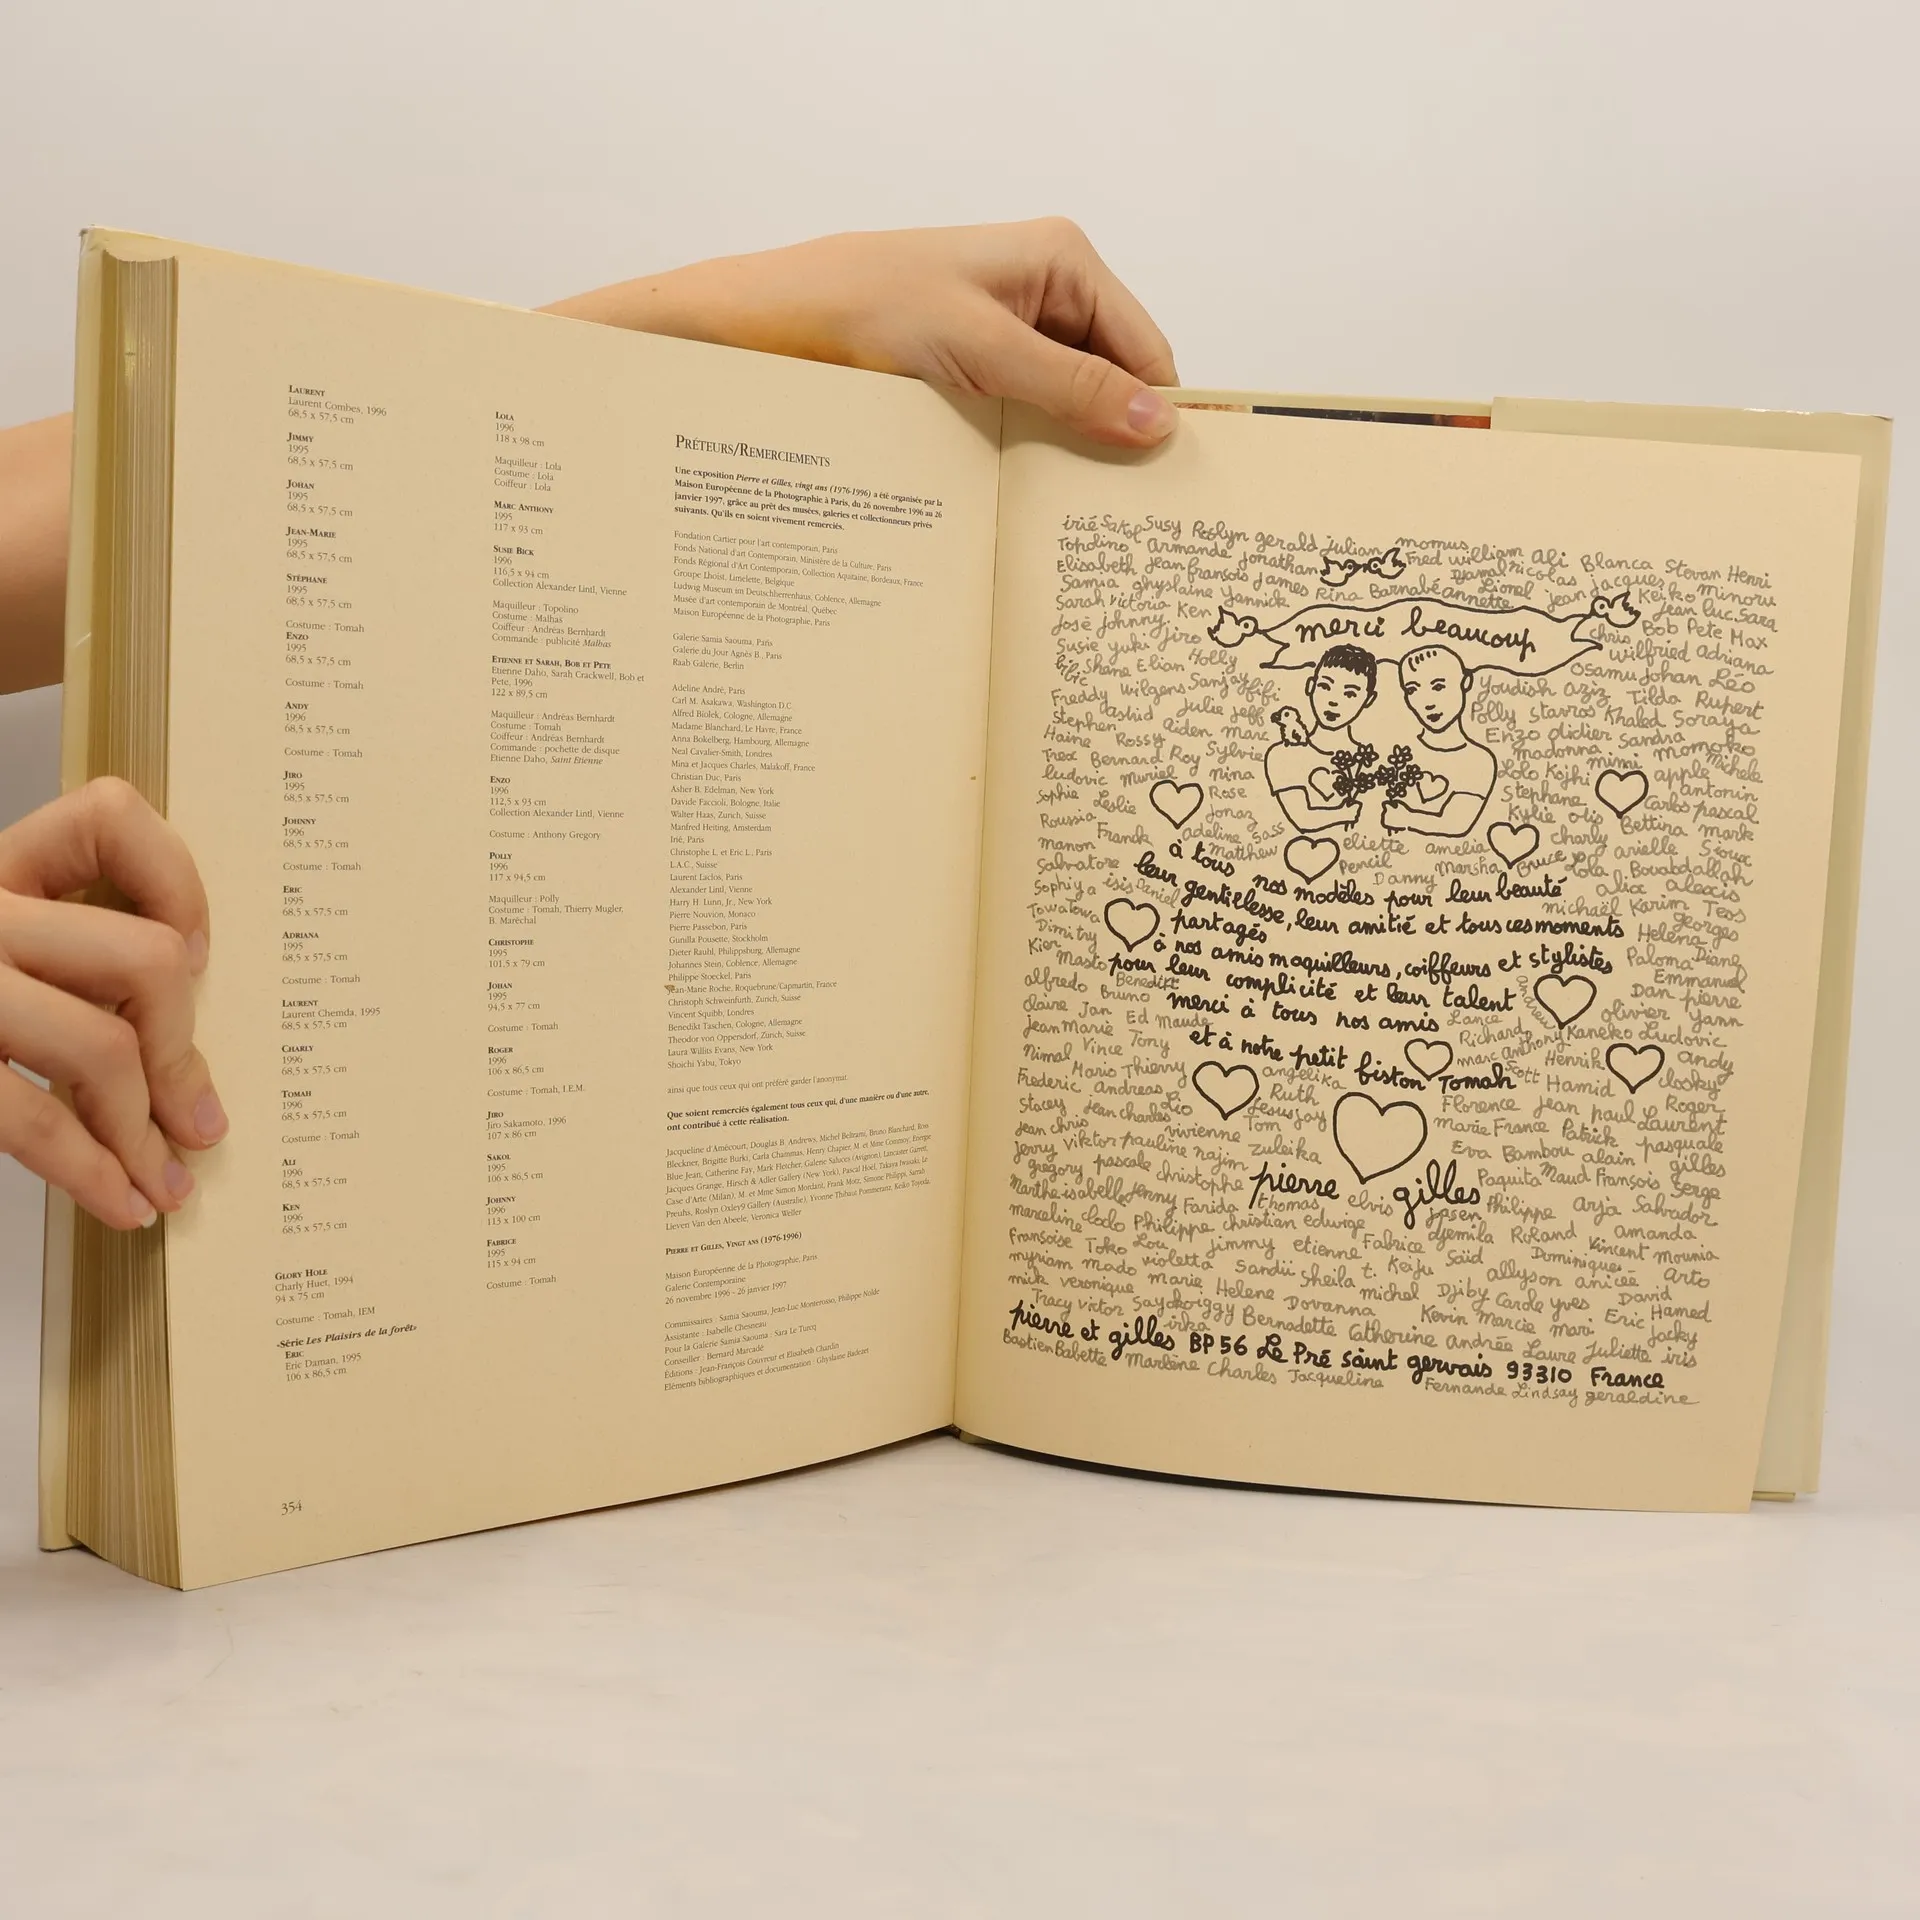 LAURENT
Laurent Combes, 1996
68,5 x 57,5 cm
JIMMY
1995
68,5 x 57,5 cm
JOHAN
1995
68,5 x 57,5 cm
JEAN-MARIE
1995
68,5 x 57,5 cm
STÉPHANE
1995
68,5 x 57,5 cm
Costume : Tomah
ENZO
1995
68,5 x 57,5 cm
Costume : Tomah
ANDY
1996
68,5 x 57,5 cm
Costume : Tomah
JIRO
1995
68,5 x 57,5 cm
JOHNNY
1996
68,5 x 57,5 cm
Costume : Tomah
ERIC
1995
68,5 x 57,5 cm
ADRIANA
1995
68,5 x 57,5 cm
Costume : Tomah
LAURENT
Laurent Chemda, 1995
68,5 x 57,5 cm
CHARLY
1996
68,5 x 57,5 cm
TOMAH
1996
68,5 x 57,5 cm
Costume : Tomah
ALI
1996
68,5 x 57,5 cm
KEN
1996
68,5 x 57,5 cm
GLORY HOLE
Charly Huet, 1994
94 x 75 cm
Costume : Tomah, IEM
«Série Les Plaisirs de la forêt»
ERIC
Eric Daman, 1995
106 x 86,5 cm
354
LOLA
1996
118 x 98 cm
Maquilleur : Lola
Costume : Lola
Coiffeur : Lola
MARC ANTHONY
1995
117 x 93 cm
SUSIE BICK
1996
116,5 x 94 cm
Collection Alexander Lintl, Vienne
Maquilleur : Topolino
Costume : Malhas
Coiffeur : Andréas Bernhardt
Commande : publicité Malhas
ETIENNE ET SARAH, BOB ET PETE
Etienne Daho, Sarah Crackwell, Bob et
Pete, 1996
122 x 89,5 cm
Maquilleur : Andréas Bernhardt
Costume : Tomah
Coiffeur : Andréas Bernhardt
Commande : pochette de disque
Etienne Daho, Saint Etienne
ENZO
1996
112,5 x 93 cm
Collection Alexander Lintl, Vienne
Costume : Anthony Gregory
POLLY
1996
117 x 94,5 cm
Maquilleur : Polly
Costume : Tomah, Thierry Mugler,
B. Maréchal
CHRISTOPHE
1995
101,5 x 79 cm
JOHAN
1995
94,5 x 77 cm
Costume : Tomah
ROGER
1996
106 x 86,5 cm
Costume : Tomah, I.E.M.
JIRO
Jiro Sakamoto, 1996
107 x 86 cm
SAKOL
1995
106 x 86,5 cm
JOHNNY
1996
113 x 100 cm
FABRICE
1995
115 x 94 cm
Costume : Tomah
PRÉTEURS/REMERCIEMENTS
Une exposition Pierre et Gilles, vingt ans (1976-1996) a été organisée par la
Maison Européenne de la Photographie à Paris, du 26 novembre 1996 au 26
janvier 1997, grâce au prêt des musées, galeries et collectionneurs privés
suivants. Qu'ils en soient vivement remerciés.
Fondation Cartier pour l'art contemporain, Paris
Fonds National d'art Contemporain, Ministère de la Culture, Paris
Fonds Régional d'Art Contemporain, Collection Aquitaine, Bordeaux, France
Groupe Lhoist, Limelette, Belgique
Ludwig Museum im Deutschherrenhaus, Coblence, Allemagne
Musée d'art contemporain de Montréal, Québec
Maison Européenne de la Photographie, Paris
Galerie Samia Saouma, Paris
Galerie du Jour Agnès B., Paris
Raab Galerie, Berlin
Adeline André, Paris
Carl M. Asakawa, Washington D.C.
Alfred Biolek, Cologne, Allemagne
Madame Blanchard, Le Havre, France
Anna Bokelberg, Hambourg, Allemagne
Neal Cavalier-Smith, Londres
Mina et Jacques Charles, Malakoff, France
Christian Duc, Paris
Asher B. Edelman, New York
Davide Faccioli, Bologne, Italie
Walter Haas, Zurich, Suisse
Manfred Heiting, Amsterdam
Irié, Paris
Christophe L. et Eric L., Paris
L.A.C., Suisse
Laurent Laclos, Paris
Alexander Lintl, Vienne
Harry H. Lunn, Jr., New York
Pierre Nouvion, Monaco
Pierre Passebon, Paris
Gunilla Pousette, Stockholm
Dieter Rauhl, Philippsburg, Allemagne
Johannes Stein, Coblence, Allemagne
Philippe Stoeckel, Paris
Jean-Marie Roche, Roquebrune/Capmartin, France
Christoph Schweinfurth, Zurich, Suisse
Vincent Squibb, Londres
Benedikt Taschen, Cologne, Allemagne
Theodor von Oppersdorf, Zurich, Suisse
Laura Willits Evans, New York
Shoichi Yabu, Tokyo
ainsi que tous ceux qui ont préféré garder l'anonymat.
Que soient remerciés également tous ceux qui, d'une manière ou d'une autre,
ont contribué à cette réalisation.
Jacqueline d'Amécourt, Douglas B. Andrews, Michel Beltrami, Bruno Blanchard, Ross
Bleckner, Brigitte Burki, Carla Chammas, Henry Chapier, M. et Mme Conmoy,
Blue Jean, Catherine Fay, Mark Fletcher, Galerie Saluces (Avignon), Lancaster Garrett,
Jacques Grange, Hirsch & Adler Gallery (New York), Pascal Hoel, Takaya Iwasaki, Le
Case d'Arte (Milan), M. et Mme Simon Mordant, Frank Motz, Simone Philippi, Sarah
Preufts, Roslyn Oxley9 Gallery (Australie), Yvonne Thibaut Pommerantz, Keiko Toyoda,
Lieven Van den Abeele, Veronica Weller
PIERRE ET GILLES, VINGT ANS (1976-1996)
Maison Européenne de la Photographie, Paris
Galerie Contemporaine
26 novembre 1996 - 26 janvier 1997
Commissaires : Samia Saouma, Jean-Luc Monterosso, Philippe Nolde
Assistante : Isabelle Chesneau
Pour la Galerie Samia Saouma : Sara Le Turcq
Conseiller : Bernard Marcadé
Éditions : Jean-François Couvreur et Elisabeth Chardin
Eléments bibliographiques et documentation : Ghyslaine Badezet
irié Sakol Susy Roslyn gerald julian momus
Topolino Armande Jonathan Fred william Ali Blanca Stevan Henri
Elisabeth jean françois James Djamal nicolas jacques minoru
Samia ghyslaine Yannick Rina Barnabé annette Lionel jean Keiko jean luc Sara
Sarah victoria Ken
merci beaucoup
chris Bob Pete Max
José johnny jiro
wilfried adriana
Susie yuki Holly
osamu johan Léo
Shane Elian
Youdish Aziz Tilda Rupert
Freddy wilgens Sanjay fifi
Polly stavros Khaled Soraya
astrid julie jeff
Enzo didier Sandra
Stephen aiden marc
madonna mimi momoko
Haine Rossy Sylvie
Lolo Kojhi apple Michele
Trex Bernard Roy
ludovic muriel nina
Stephane antonin
Sophie Leslie Rose
Carlos pascal
Roussia Jonaz
Kylie otis Bettina mark
manon Franck adeline Sass
eliette amelia charly arielle Sioux
Salvatore matthew
Pencil Danny marsha Bruce Lola Bouabdallah
à tous nos modèles pour leur beauté
alix alexis
Sophiya isis Daniel
leur gentillesse, leur amitié et tous ces moments
michaël Karim Tess
Towa Towa
partagés
Helena georges
Dimitry
à nos amis maquilleurs, coiffeurs et stylistes
Paloma Diane
Kier
Masto
pour leur complicité et leur talent
Emmanuel
alfredo Bruno Benedikt
Dan pierre
merci à tous nos amis
Lance
olivier Yann
claire Jan Ed Maude
Richard Kaneko Ludovic
jean Marie Tony
et à notre petit biston Tomah
marc anthony Henrik andy
Nimal Vince
Scott Hamid closky
Mario Thierry angelika
Frederic andreas Ruth
Florence jean paul Roger
Stacey jean charles olio Jesus jay
marie France Patrick Laurent
jean chris vivienne Tom
pasquale
Jerry viktor pauline najim zuleika
Eva Bambou alain gilles
gregory pascale christophe
pierre gilles
Paquita Maud François Serge
Marthe isabelle Jenny Farida thomas elvis
Philippe arja Salvador
marceline clodo Philippe christian edwige
djemila Roland amanda
Fransoise Toko Lou jimmy etienne Fabrice Saïd Dominique Vincent mounia
myriam mado violetta Sandii Sheila t. Keiju allyson anicée Arto
mick veronique marie Helene Dovanna michel Djiby Carole yves David
Tracy victor Bernadette Catherine Kevin Marcie mari Eric Hamed
irka andrée Laure Juliette Jacky
pierre et gilles BP 56 Le Pré saint gervais 93310 France
iris
Bastien Babette Marlène Charles Jacqueline Fernande Lindsay geraldine